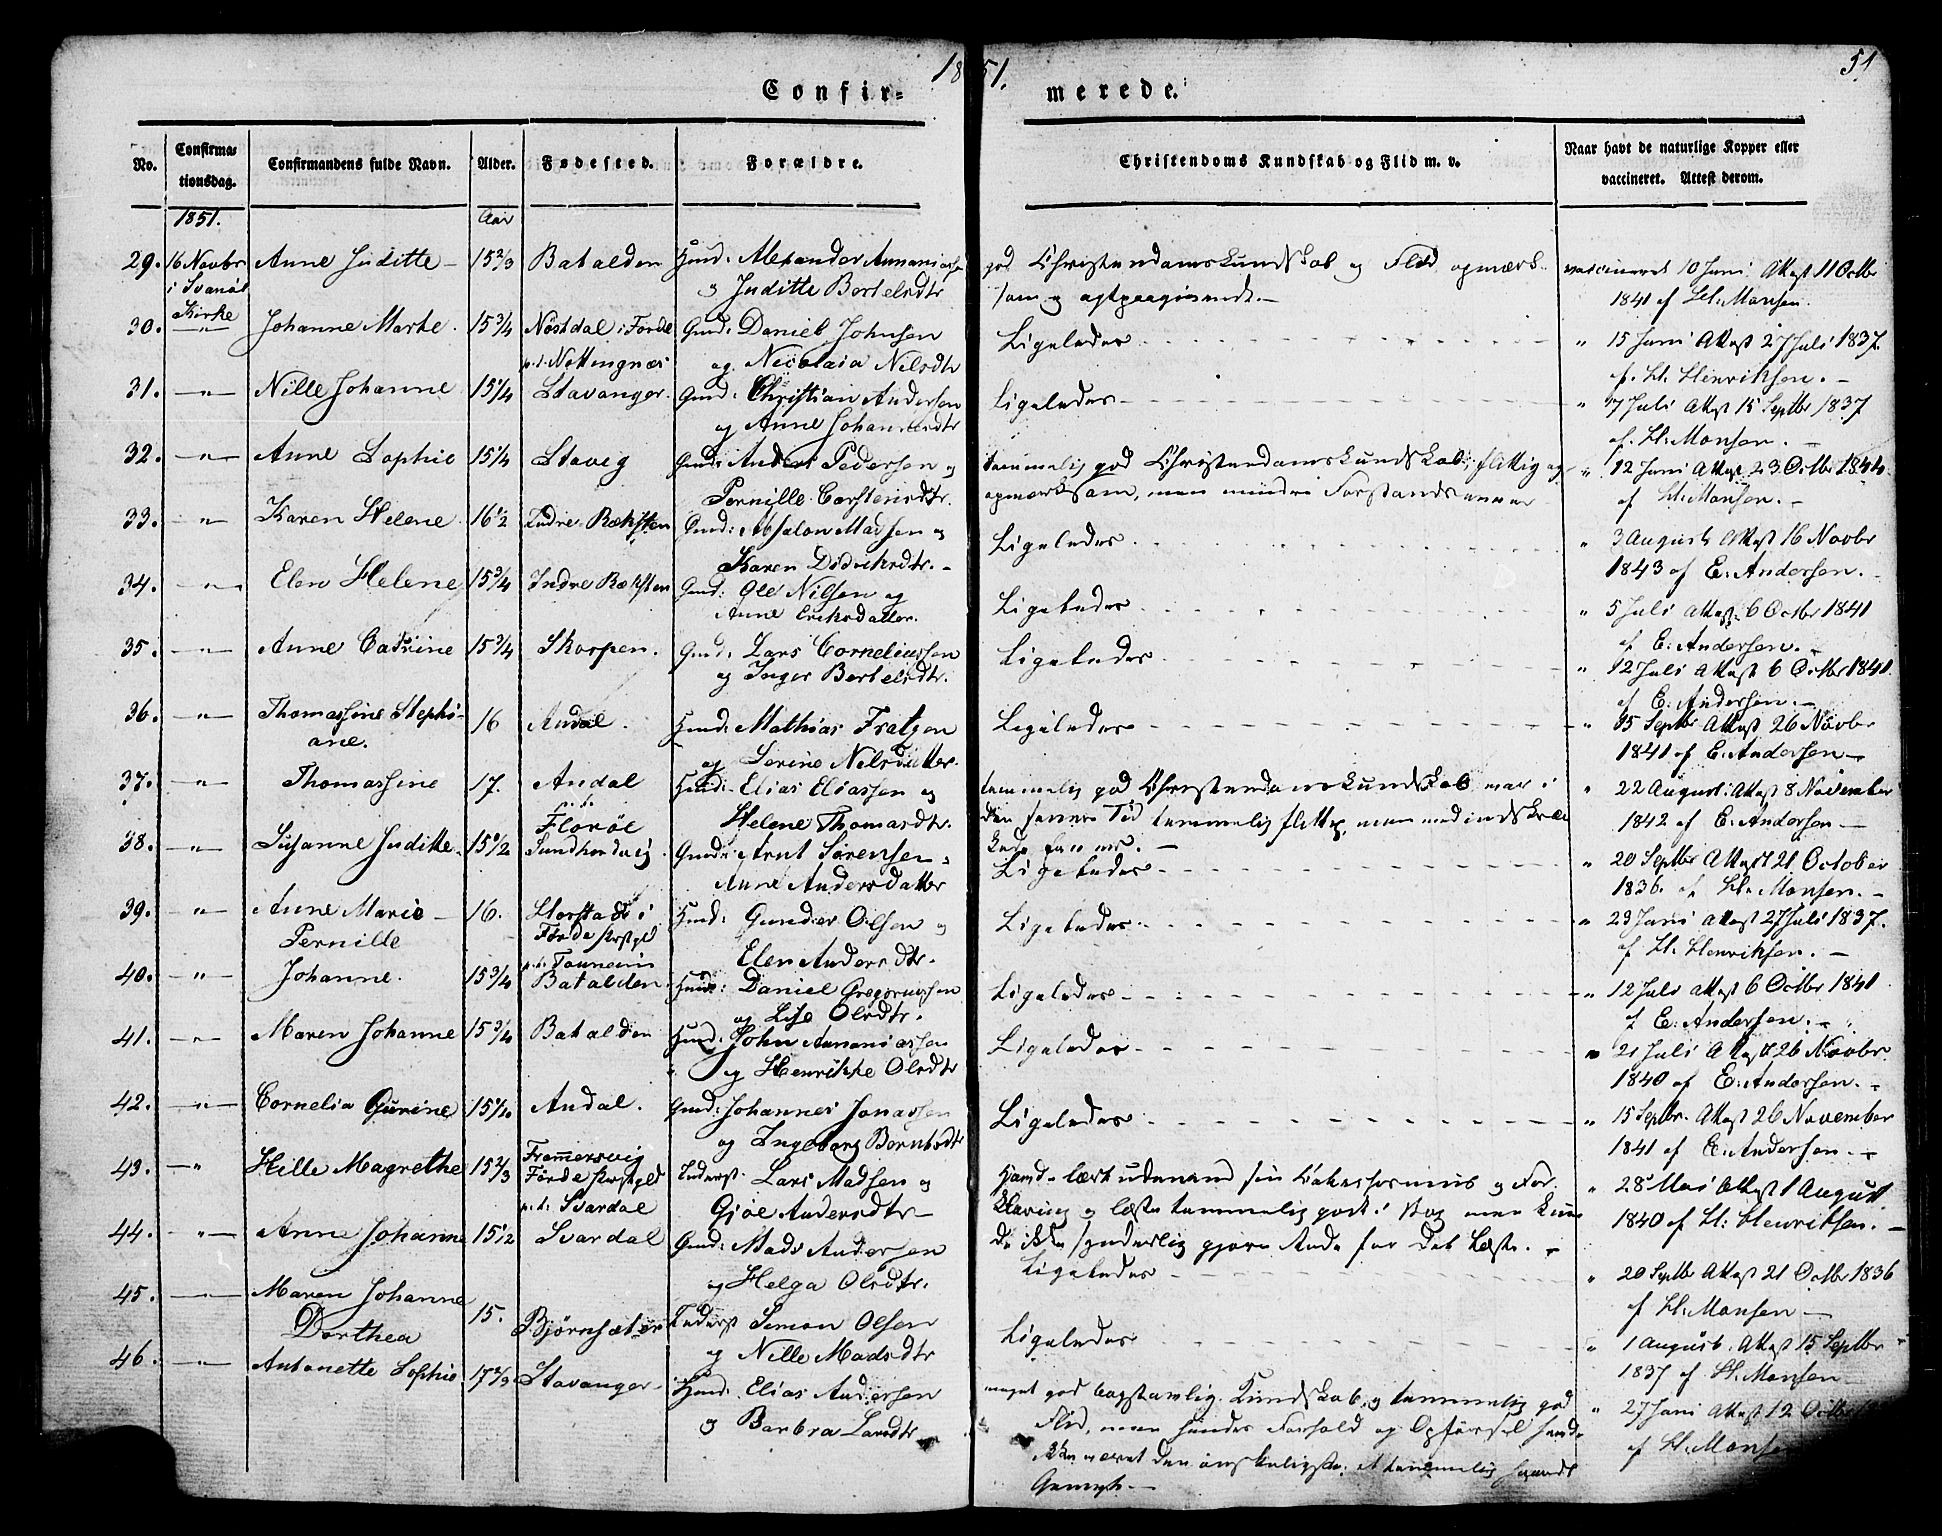 1851.
51
Confir-
merede.
No.
Confirma-
tionsdag.
Confirmandens fulde Navn.
Alder.
Fødested.
Forældre.
Christendoms Kundskab og Flid m. v.
Naar havt de naturlige Kopper eller
vaccineret. Attest derom.
1851.
Aar
29. 16 Novbr Anne Juditte 15 2/3 Batalden Gmd: Alexander Annaniassen god Christendomskundskab og Flid opmærk- vaccineret 10 Juni Attest 11 Octbr
i Svanøe og Juditte Bertelsdtr som og agtpaagivende. 1841 af H: Monsen
Kirke
30. " Johanne Marte 15 3/4 Nøstdal i Førde Gmd: Daniel Johnsen Ligeledes " 15 Juni Attest 27 Juli 1837
og Nicolaia Nilsdtr f. H. Henriksen.
31. " Nille Johanne 15 1/4 Stavanger Gmd: Christian Andersen Ligeledes " 7 Juli Attest 15 Septbr 1837
og Anne Johannesdtr af H. Monsen.
32. " Anne Sophie 15 1/4 Stavig Gmd: Anders Pedersen og temmelig god Christendomskundskab, flittig og " 12 Juni Attest 23 Octbr 1844
Pernille Carstensdtr. opmærksom, men mindre Forstandsevner af H: Monsen.
33. " Karen Helene 16 1/2 Indre Ræksten Gmd: Absalon Madsen og Ligeledes " 3 August Attest 16 Novbr
Karen Didriksdtr. 1843 af E. Andersen.
34. " Elen Helene 15 3/4 Indre Ræksten Gmd: Ole Nilsen og Ligeledes " 5 Juli Attest 6 Octbr 1841
Anne Eriksdatter. af E: Andersen.
35. " Anne Catrine 15 3/4 Skorpen. Gmd: Lars Corneliussen Ligeledes " 12 Juli Attest 6 Octbr 1841
og Inger Bertelsdtr. af E: Andersen.
36. " Thomassine Stephi- 16 Andal. Hmd: Mathias Ligeledes " 15 Septbr Attest 26 Novbr
ane. og Serine Nilsdatter. 1841 af E. Andersen
37. " Thomassine 17. Andal Hmd: Elias Eliassen og temmelig god Christendomskundskab, var i " 22 August Attest 8 November
Helene Thomasdtr. den senere Tid temmelig flittig, men med indskræn- 1842 af E. Andersen
kede Evner.
38. " Susanne Juditte 15 1/2 Florøe Gmd: Arnt Sørensen Ligeledes " 20 Septbr Attest 21 October
Anne Andersdatter 1836. af H. Monsen.
39. " Anne Marie 16. Storstad i Hmd: Gunder Olsen og Ligeledes " 23 Juni Attest 27 Juli 1837.
Pernille Førde Elen Andersdtr. af H. Henriksen.
40. " Johanne. 15 3/4 Batalden Hmd: Daniel Gregoriussen Ligeledes " 12 Juli Attest 6 Octbr 1841
og Lise Olsdtr. f E: Andersen.
41. " Maren Johanne 15 3/4 Batalden Hmd: John Annaniassen Ligeledes " 21 Juli Attest 26 Novbr
og Henrikke Olsdtr 1840 af E: Andersen.
42. " Cornelia Gurine Andal. Gmd: Johannes Jonassen Ligeledes " 15 Septbr. Attest 26 November
og Ingeborg Berntsdtr 1841 af E: Andersen.
43. " Hille Magrethe 15 2/3 Frammersvig Inderst Lars Madsen og læst udenad sin Catechismus og For- " 28 Mai Attest 1 August
Førde Gjøe Andersdtr klaring og læste temmelig godt i Bog men kun- 1840 af H: Henriksen.
p.t. Svardal de ikke synderlig gjøre Rede for det Læste.
44. " Anne Johanne 15 1/2 Svardal Gmd: Mads Andersen Ligeledes " 20 Septbr Attest 21 Octbr 1836
og Helga Olsdtr. f H. Monsen
45. Maren Johanne 15. Bjørnsæter Inderst Simon Olsen Ligeledes " 1 August. Attest 15 Septbr
Dorthea og Nille Madsdtr 1837 af H. Monsen
46. " Antonette Sophie Stavanger Hmd: Elias Andersen meget god bogstavlig Kundskab og temmelig god " 27 Juni Attest 12 Octbr
og Barbra Larsdtr Flid, men hendes Forhold og Opførsel havde af H: Monsen
ikke været den ønskeligste, et temmelig
Gemyt.